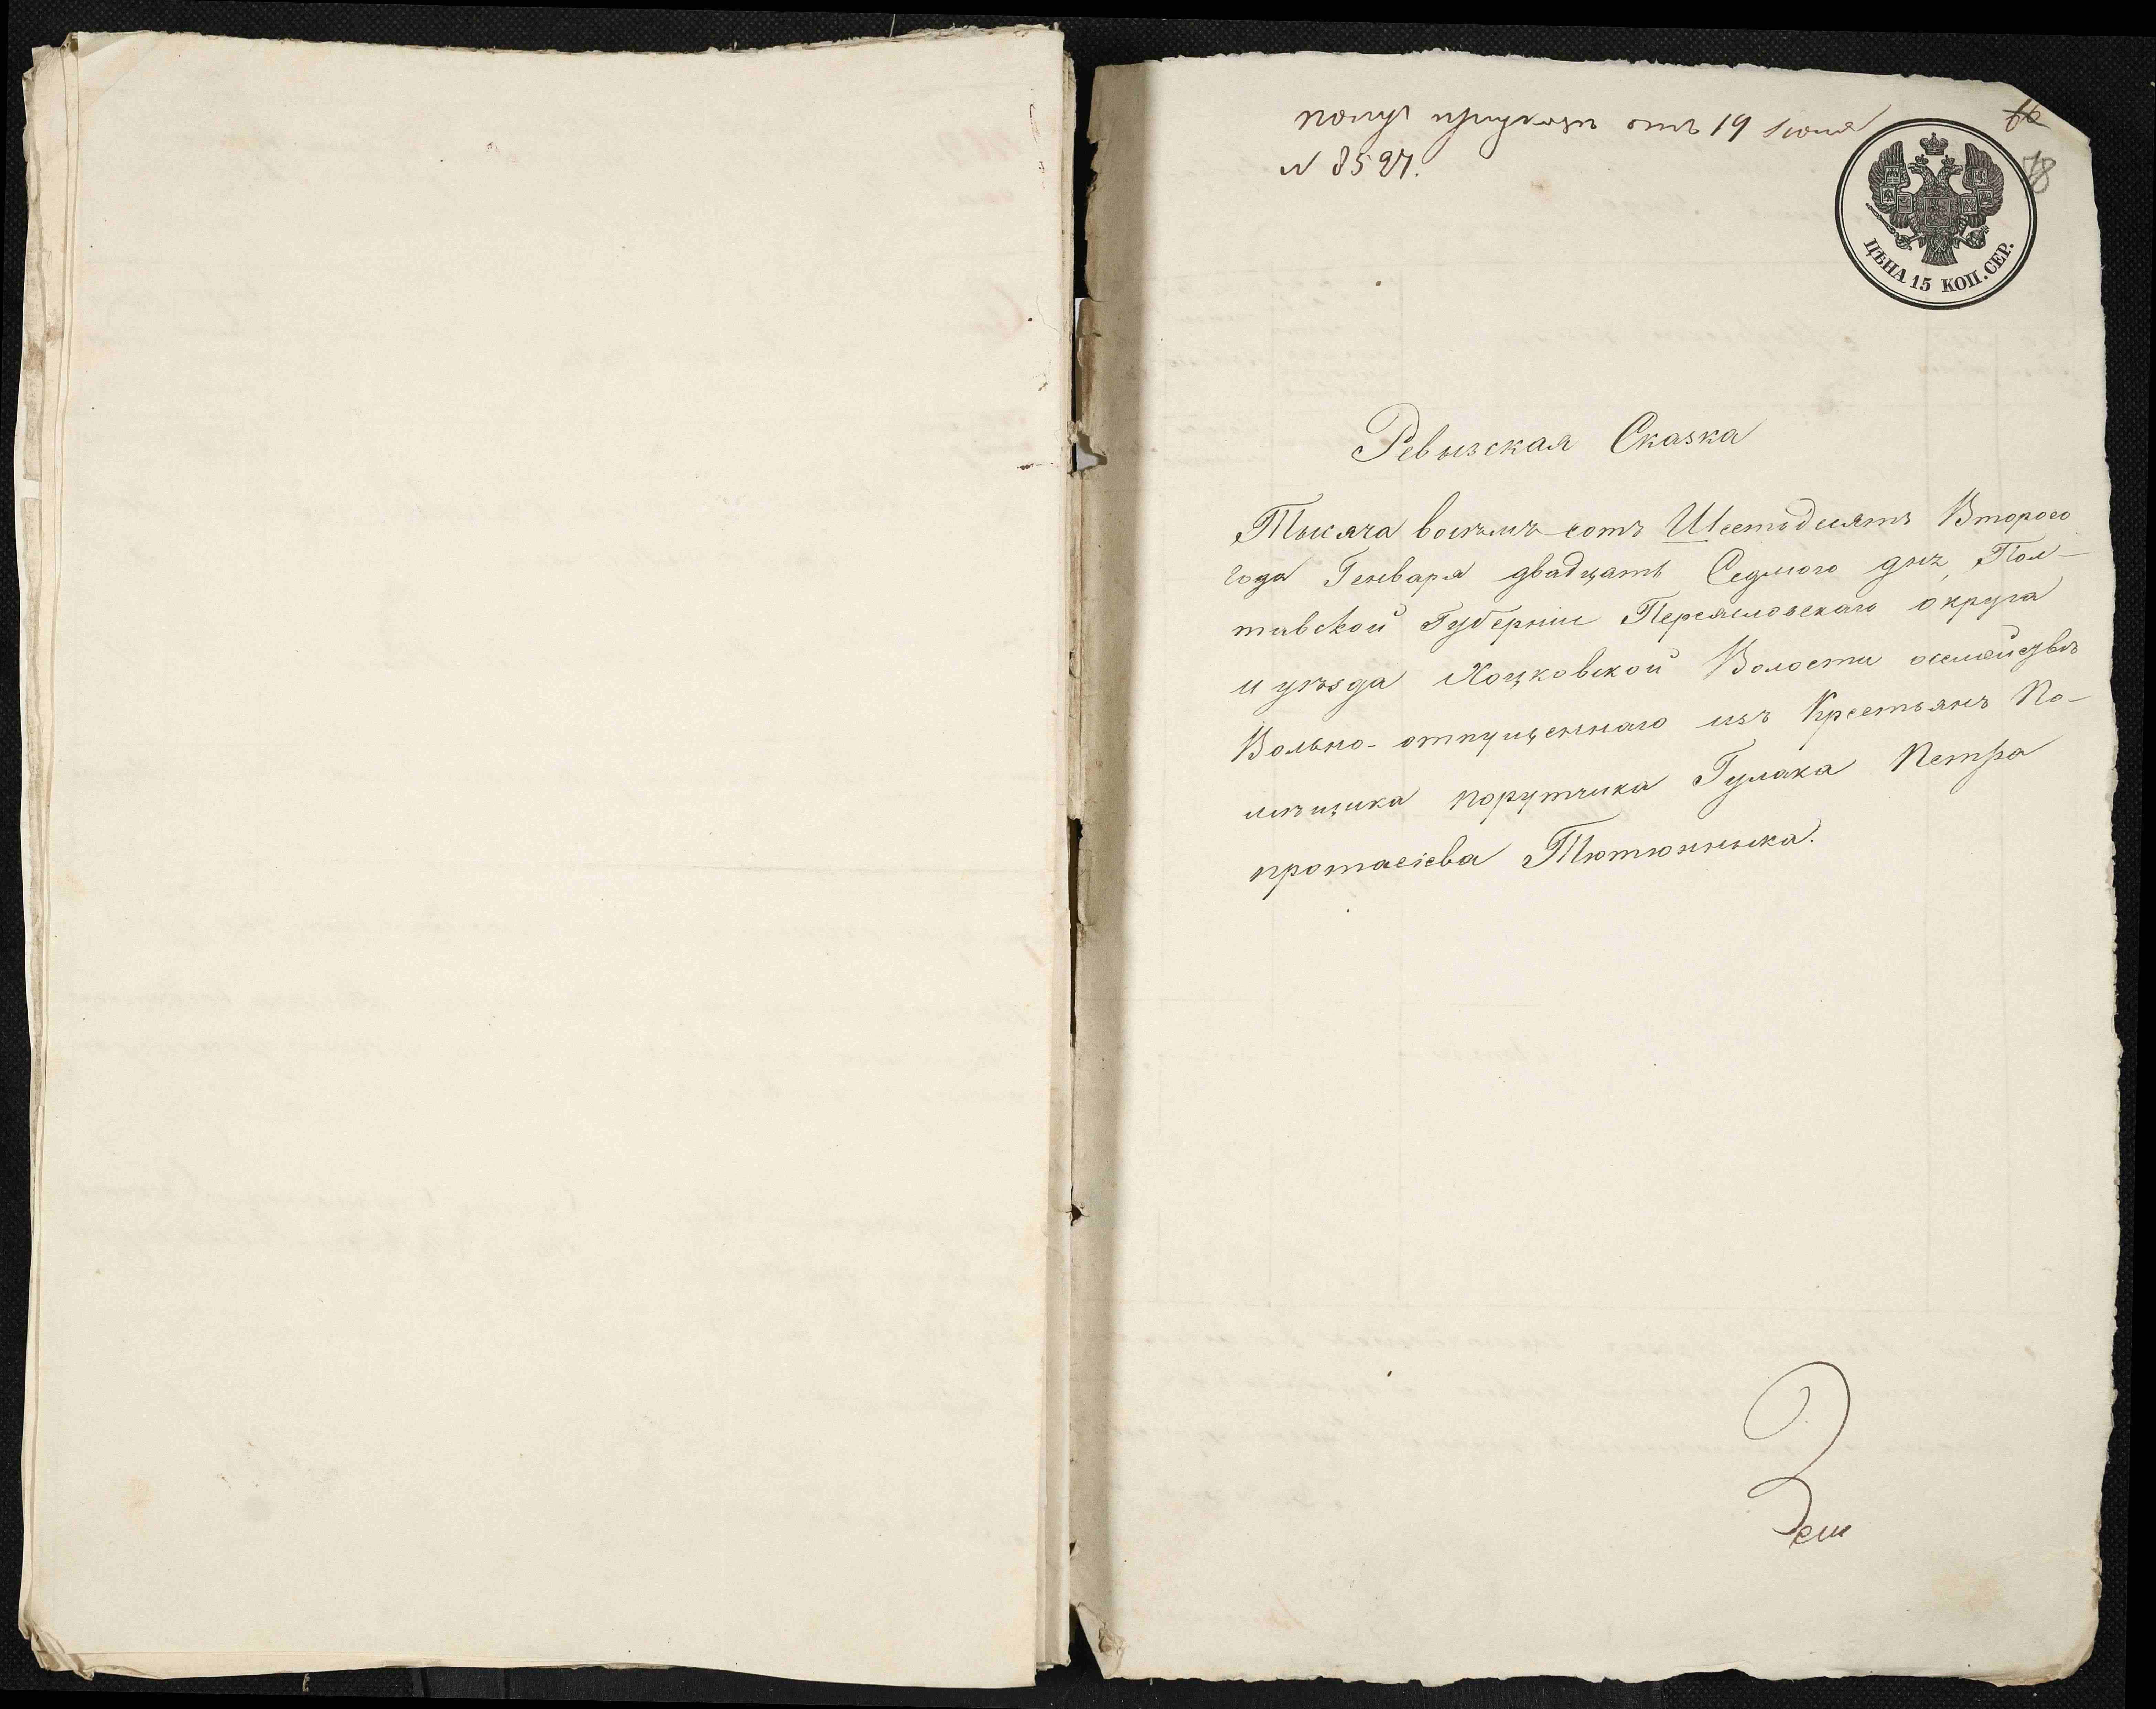 от 19 Июня
66
N 8527.
78
ЦѢНА 15 КОП. СЕР.
Ревызская Сказка
Тысяча восѣмъ сотъ Шестьдисятъ Второго
года Генваря двадцать Седмого дня, Пол-
тавской Губернии Переясловскаго округа
и уѣзда Хоцковской Волости о семействѣ
Вольно-отпущеннаго изъ Крестьянъ По-
мѣщика порутчика Гулака Петра
протасіева Тютюнныка.